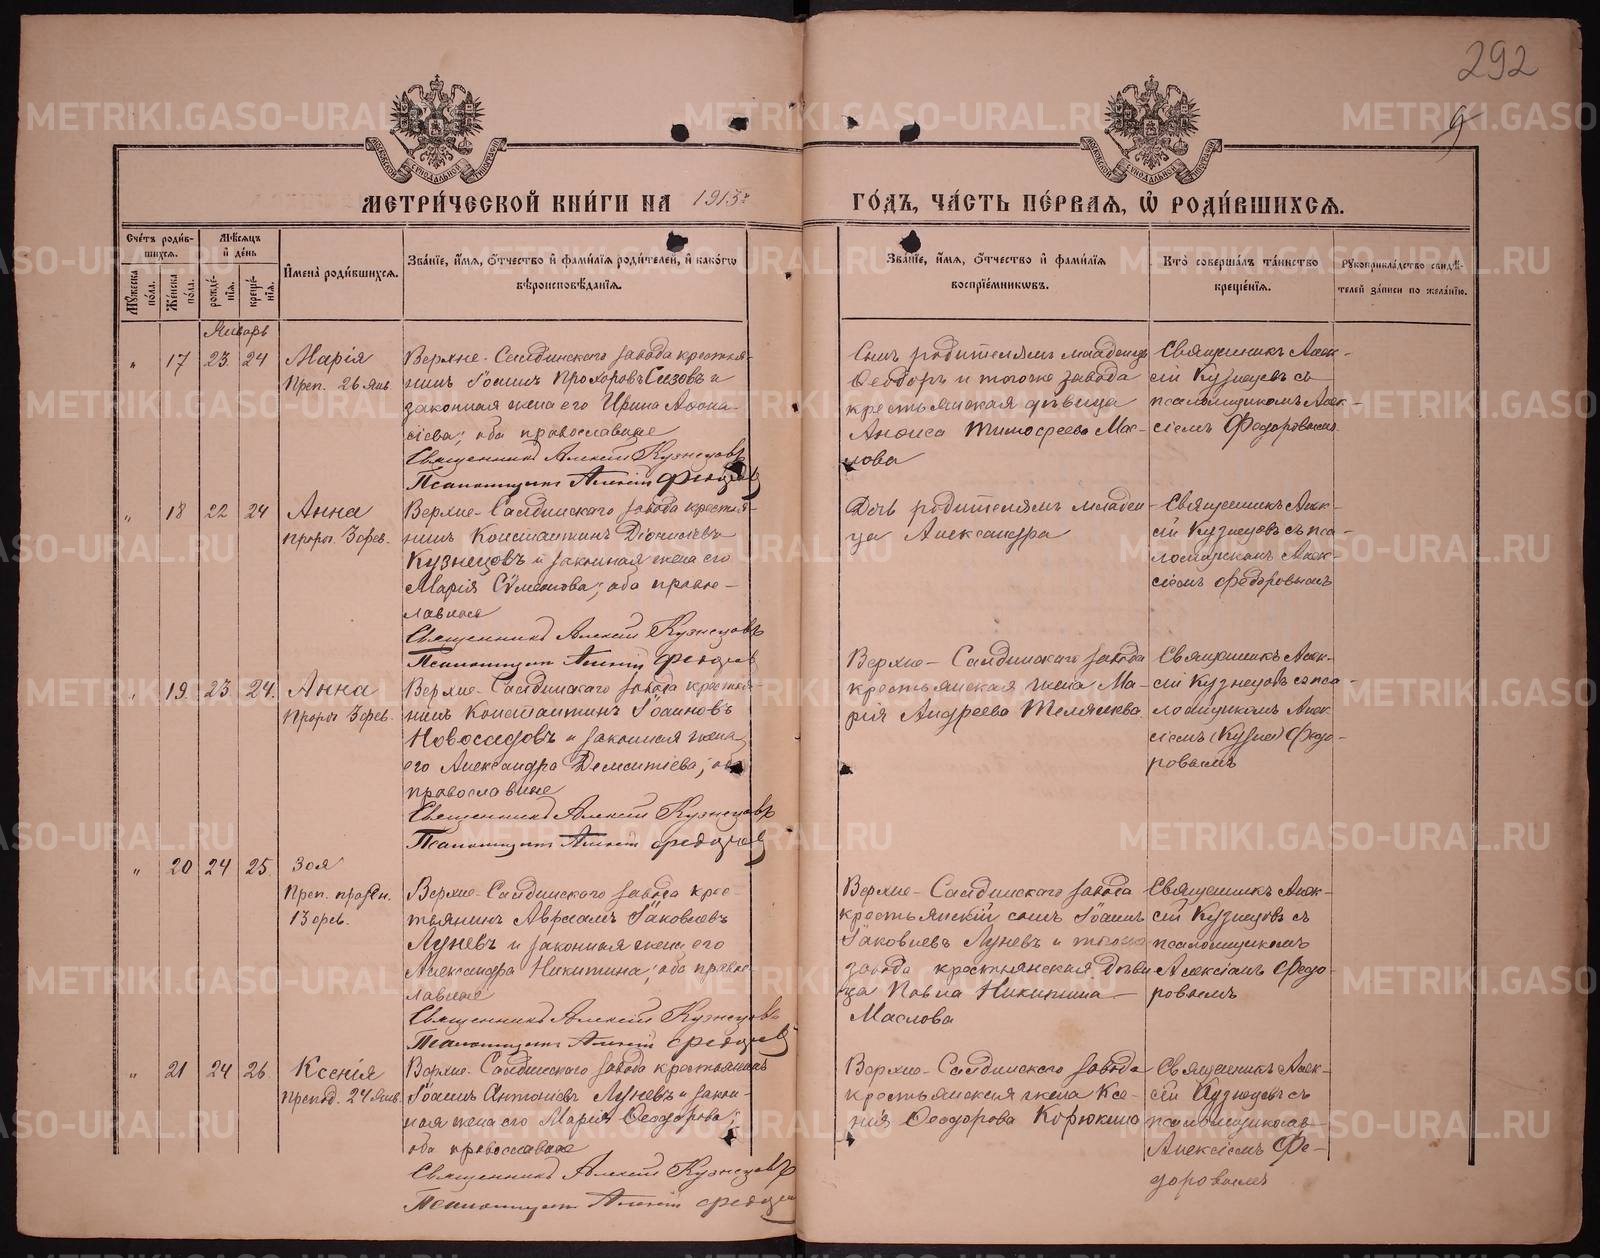 292
9
МОСКОВСКОЙ СѴНОДАЛЬНОЙ ТИПОГРАФІИ
МЕТРИ́ЧЕСКОЙ КНИ́ГИ НА 1913 г
ГО́ДЪ, ЧА́СТЬ ПЕ́РВАЯ, Ѡ РОДИ́ВШИХСЯ.
Сче́тъ роди́вшихся.
Мѣ́сяцъ и де́нь
Мꙋ́жеска по́ла.
Же́нска по́ла.
рожде́нїя.
креще́нїя.
И҆мена̀ роди́вшихся.
Зва́нїе, и҆́мя, ѻ҆́тчество и҆ фами́лїя роди́телей, и҆ како́гѡ вѣроисповѣ́данїя.
Зва́нїе, и҆́мя, ѻ҆́тчество и҆ фами́лїя воспрїе́мникѡвъ.
Кто̀ соверша́лъ та́инство креще́нїя.
Рꙋкоприкла́дство свидѣ́телей за́писи по жела́нїю.
Январь
" 17 23 24
Марія
Преп. 26 Янв.
Верхне-Салдинскаго завода крестья-
нинъ Іоаннъ Прохоровъ Сизовъ и
законная жена его Ирина Аѳана-
сіева; оба православные
Священникъ Алексій Кузнецовъ
Псаломщикъ Алексій Федоров
Сынъ родителямъ младенца
Ѳеодоръ и тогоже завода
крестьянская дѣвица
Анѳиса Тимоѳеева Мас-
лова
Священникъ Алек-
сій Кузнецовъ съ
псаломщикомъ Алек-
сіемъ Федоровымъ
" 18 22 24
Анна
прор. 3 фев.
Верхне-Салдинскаго завода крестья-
нинъ Константинъ Діонисіевъ
Кузнецовъ и законная жена его
Марія Сѵмеонова; оба право-
славные
Священникъ Алексій Кузнецовъ
Псаломщикъ Алексій Федоров
Дочь родителямъ младен-
ца Александра
Священникъ Алек-
сій Кузнецовъ съ пса-
ломщикомъ Алек-
сіемъ Федоровымъ
" 19. 23. 24.
Анна
Прор. 3 фев.
Верхне-Салдинскаго завода крестья-
нинъ Константинъ Іоанновъ
Новосадовъ и законная жена
его Александра Дементіева; оба
православные
Священникъ Алексій Кузнецовъ
Псаломщикъ Алексій Федоров
Верхне-Салдинскаго завода
крестьянская жена Ма-
рія Андреева
Священникъ Алек-
сій Кузнецовъ съ пса-
ломщикомъ Алек
сіемъ (Кузне) Федо-
ровымъ
" 20 24 25.
Зоя
Преп. празdн.
13 фев.
Верхне-Салдинскаго завода крес-
тьянинъ Авраамъ Іаковлевъ
Лунёвъ и законная жена его
Александра Никитина; оба право-
славные
Священникъ Алексій Кузнецовъ
Псаломщикъ Алексій Федоров
Верхне-Салдинскаго завода
крестьянскій сынъ Іоаннъ
Іаковлевъ Лунёвъ и тогоже
завода крестьянская дѣви
ца Павла Никитина
Маслова
Священникъ Алек-
сій Кузнецовъ съ
псаломщикомъ
Алексіемъ Федо-
ровымъ
" 21 24 26.
Ксенія
препод. 24 Янв.
Верхне-Салдинскаго завода крестьянинъ
Іоаннъ Антоніевъ Лунёвъ и закон-
ная жена его Марія Ѳеодорова;
оба православные
Священникъ Алексій Кузнецовъ
Псаломщикъ Алексій Федоров
Верхне-Салдинскаго завода
крестьянская жена Ксе-
нія Ѳеодорова Корюкина
Священникъ Алек-
сій Кузнецовъ съ
псаломщикомъ
Алексіемъ Фе-
доровымъ
METRIKI.GASO-URAL.RU